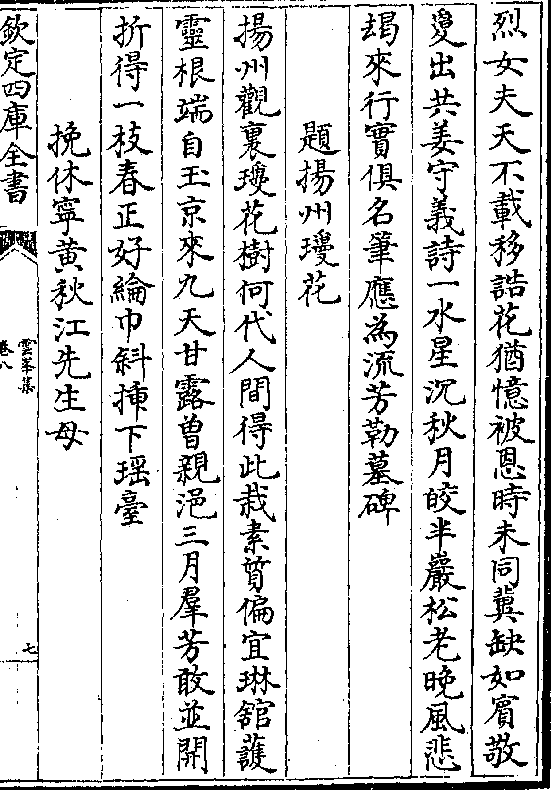 烈女夫天不載移誥花猶憶被恩時未同冀缺如賓敬
夐出共姜守義詩一水星沉秋月皎半巖松老晚風悲
朅來行實俱名筆應為流芳勒墓碑
題揚州瓊花
揚州觀裏瓊花樹何代人間得此栽素質偏宜琳館護
靈根端自玉京來九天甘露曽親浥三月羣芳敢並開
折得一枝春正好綸巾斜揷下瑶臺
挽休寧黄秋江先生母
欽定四庫全書
雲峯集
卷八
七